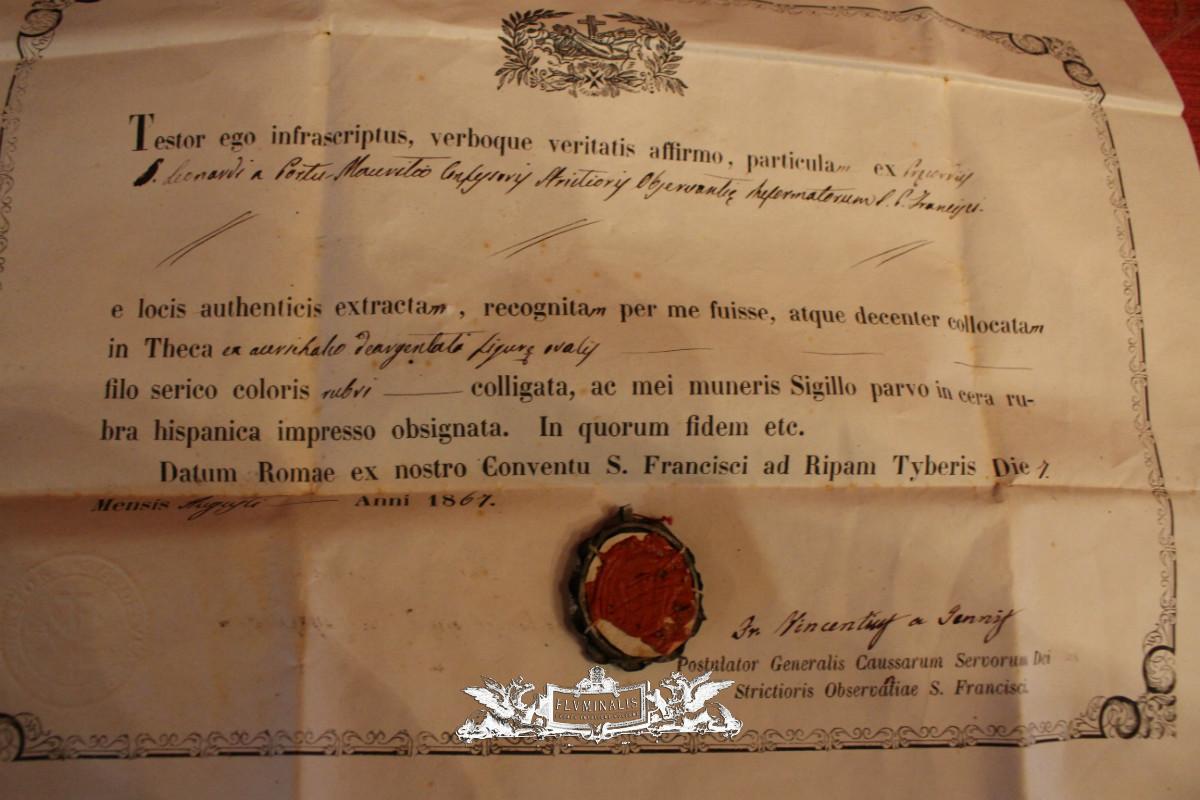 Testor ego infrascriptus, verboque veritatis affirmo, particulam ex
S. Leonardi a Portu Mauritio Confessoris Strictioris Observantię Reformatorum S. P. Francisci.
e locis authenticis extractam, recognitam per me fuisse, atque decenter collocatam
in Theca ex aurichalco deargentato figurę ovalis
filo serico coloris rubri colligata, ac mei muneris Sigillo parvo in cera ru-
bra hispanica impresso obsignata. In quorum fidem etc.
Datum Romae ex nostro Conventu S. Francisci ad Ripam Tyberis Die 7.
Mensis Augusti Anni 1867.
Fr. Vincentius a Jennis
Postulator Generalis Caussarum Servorum Dei
Strictioris Observatiae S. Francisci
FLVMINALIS